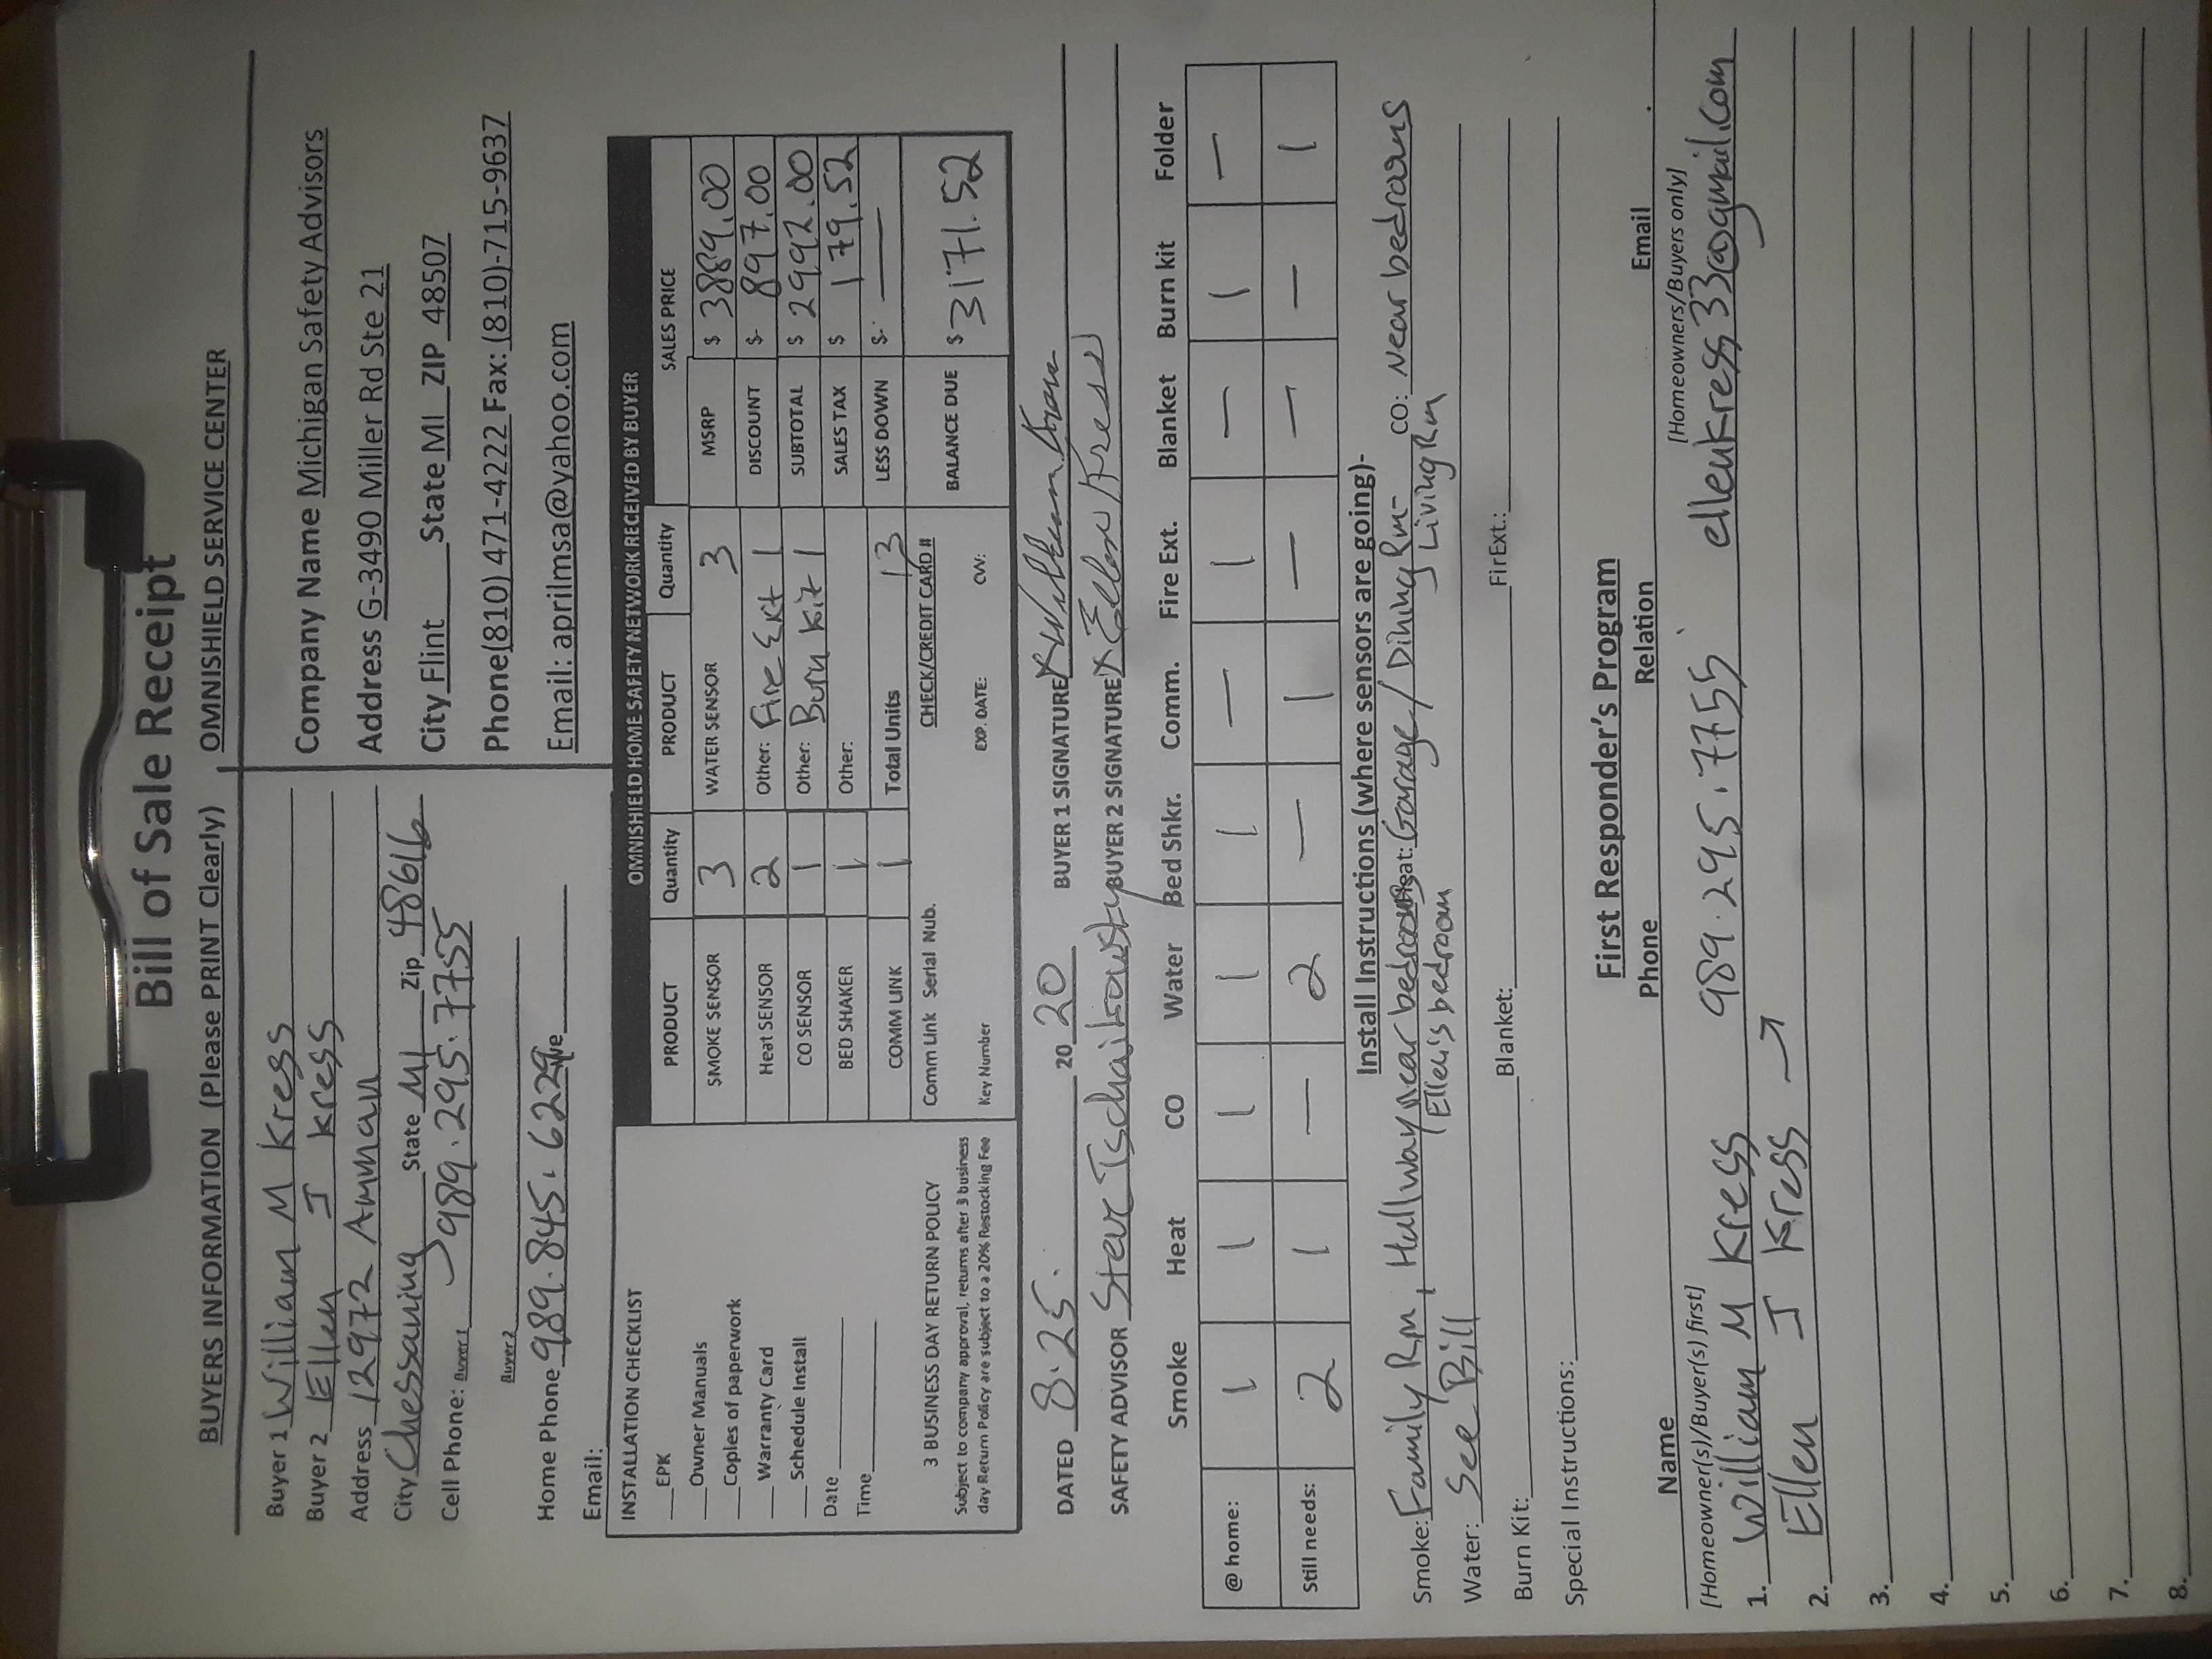 Bill of Sale Receipt
BUYERS INFORMATION (Please PRINT Clearly)
Buyer 1 William M Kress
Buyer 2 Ellen J Kress
Address 12972 Amman
City Chessaning State MI Zip 48616
Cell Phone: Buyer1 989.295.7755
Buyer2
Home Phone 989.845.6229
Email:
OMNISHIELD SERVICE CENTER
Company Name Michigan Safety Advisors
Address G-3490 Miller Rd Ste 21
City Flint State MI ZIP 48507
Phone (810) 471-4222 Fax: (810)-715-9637
Email: aprilmsa@yahoo.com
INSTALLATION CHECKLIST
EPK
Owner Manuals
Copies of paperwork
Warranty Card
Schedule Install
Date
Time
3 BUSINESS DAY RETURN POLICY
Subject to company approval, returns after 3 business
day Return Policy are subject to a 20% Restocking Fee
OMNISHIELD HOME SAFETY NETWORK RECEIVED BY BUYER
PRODUCT Quantity PRODUCT Quantity SALES PRICE
SMOKE SENSOR 3 WATER SENSOR 3 MSRP $ 3889.00
Heat SENSOR 2 Other: Fire Ext 1 DISCOUNT $- 897.00
CO SENSOR 1 Other: Burn Kit 1 SUBTOTAL $ 2992.00
BED SHAKER 1 Other: SALES TAX $ 179.52
COMM LINK 1 Total Units 13 LESS DOWN $- —
Comm Link Serial Nub. CHECK/CREDIT CARD # BALANCE DUE $ 3171.52
Key Number EXP. DATE: CVV:
DATED 8.25. 20 20 BUYER 1 SIGNATURE X William Kress
SAFETY ADVISOR Steve Tschaikowsky BUYER 2 SIGNATURE X Ellen Kress
Smoke Heat CO Water Bed Shkr. Comm. Fire Ext. Blanket Burn kit Folder
@ home: 1 1 1 1 1 — 1 — 1 —
Still needs: 2 1 — 2 — 1 — — — 1
Install Instructions (where sensors are going)-
Smoke: Family Rm, Hallway near bedrooms Heat: Garage / Dining Rm- CO: Near bedrooms
(Ellen's bedroom Living Rm
Water: See Bill
Burn Kit: Blanket: FirExt.:
Special Instructions:
First Responder's Program
Name Phone Relation Email
[Homeowner(s)/Buyer(s) first] [Homeowners/Buyers only]
1. William M Kress 989.295.7755 ellenkress33@gmail.com
2. Ellen J Kress
3.
4.
5.
6.
7.
8.